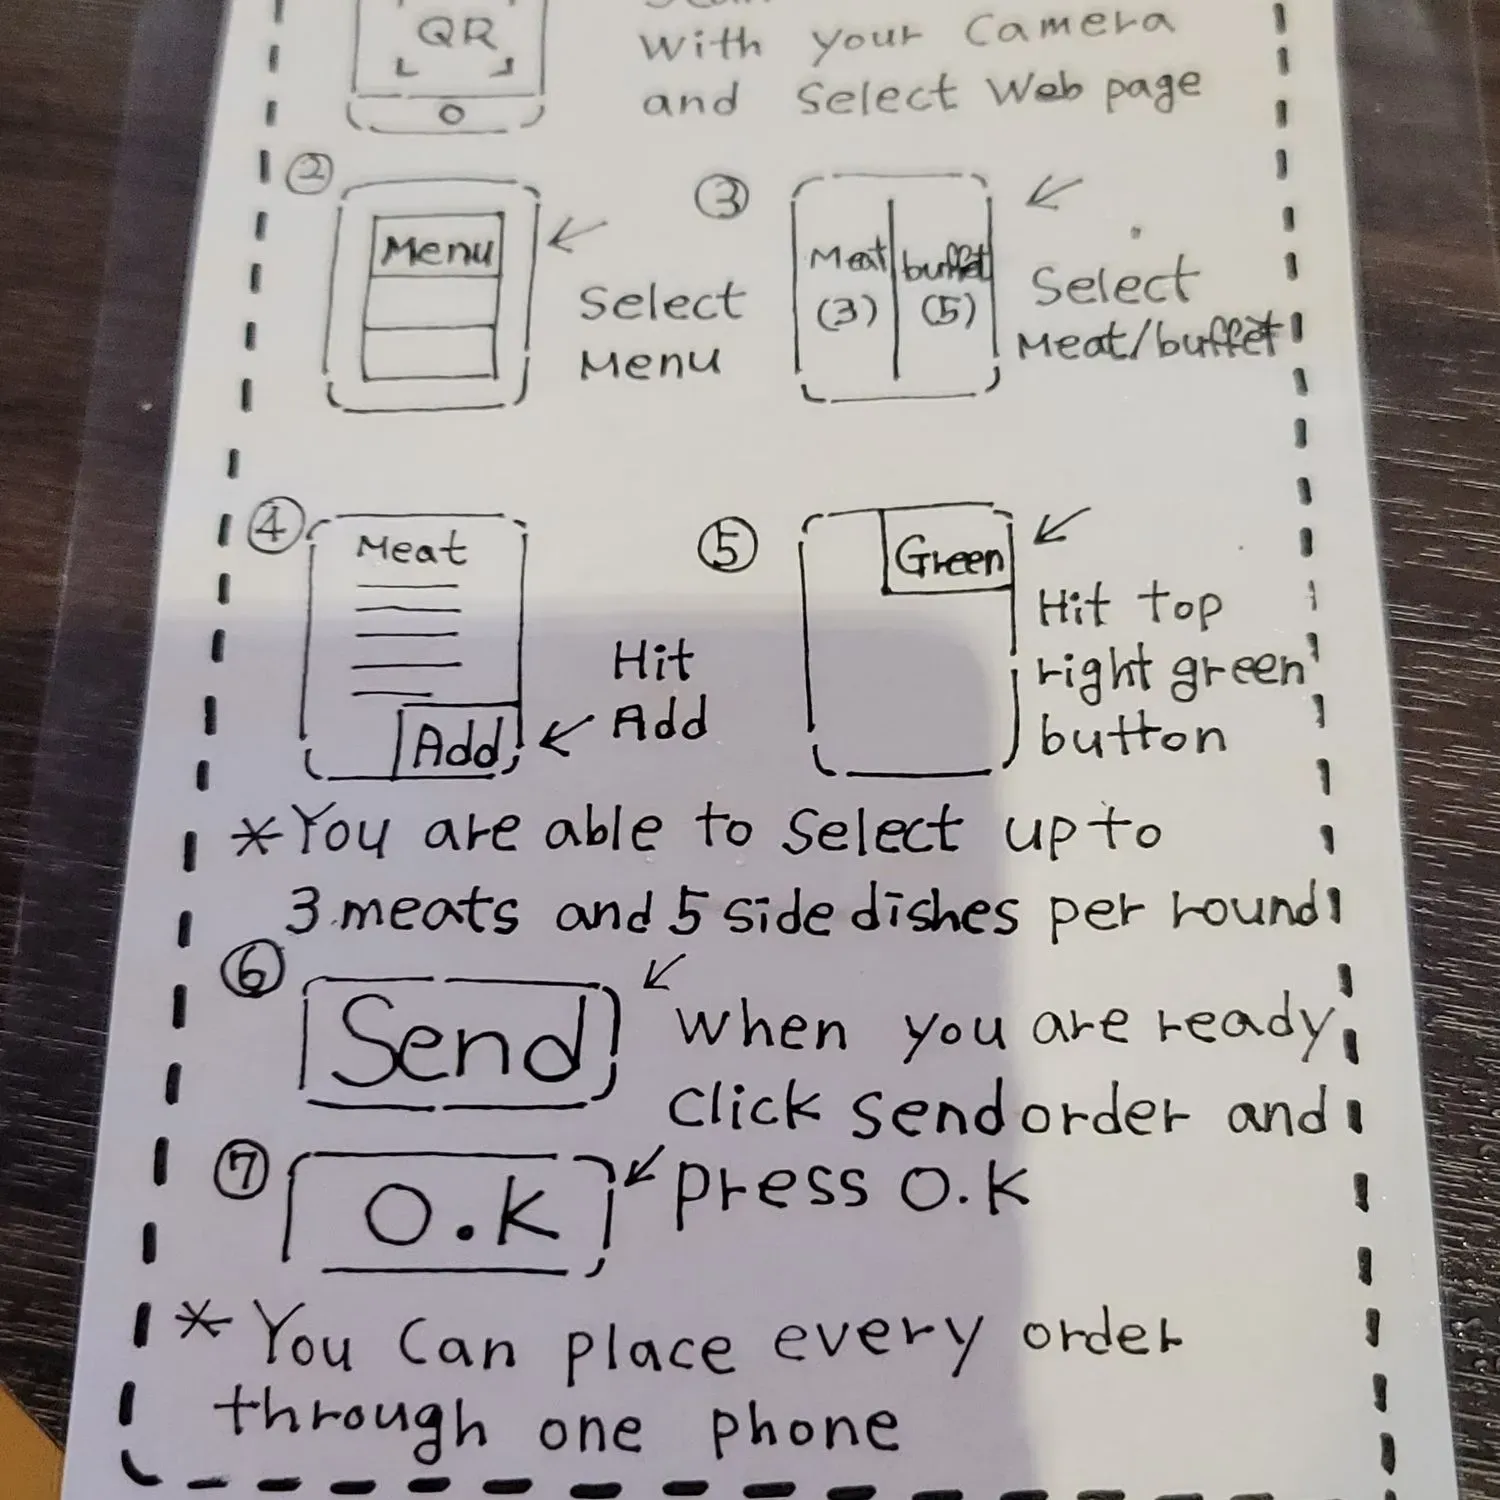 QR
with your Camera
and Select Web page
②
Menu
Select
Menu
③
Meat
(3)
buffet
(5)
Select
Meat/buffet
④
Meat
Add
Hit
Add
⑤
Green
Hit top
right green
button
*You are able to Select up to
3 meats and 5 side dishes per round
⑥
Send
When you are ready
Click Send order and
⑦
O.K
press O.K
* You Can place every order
through one phone